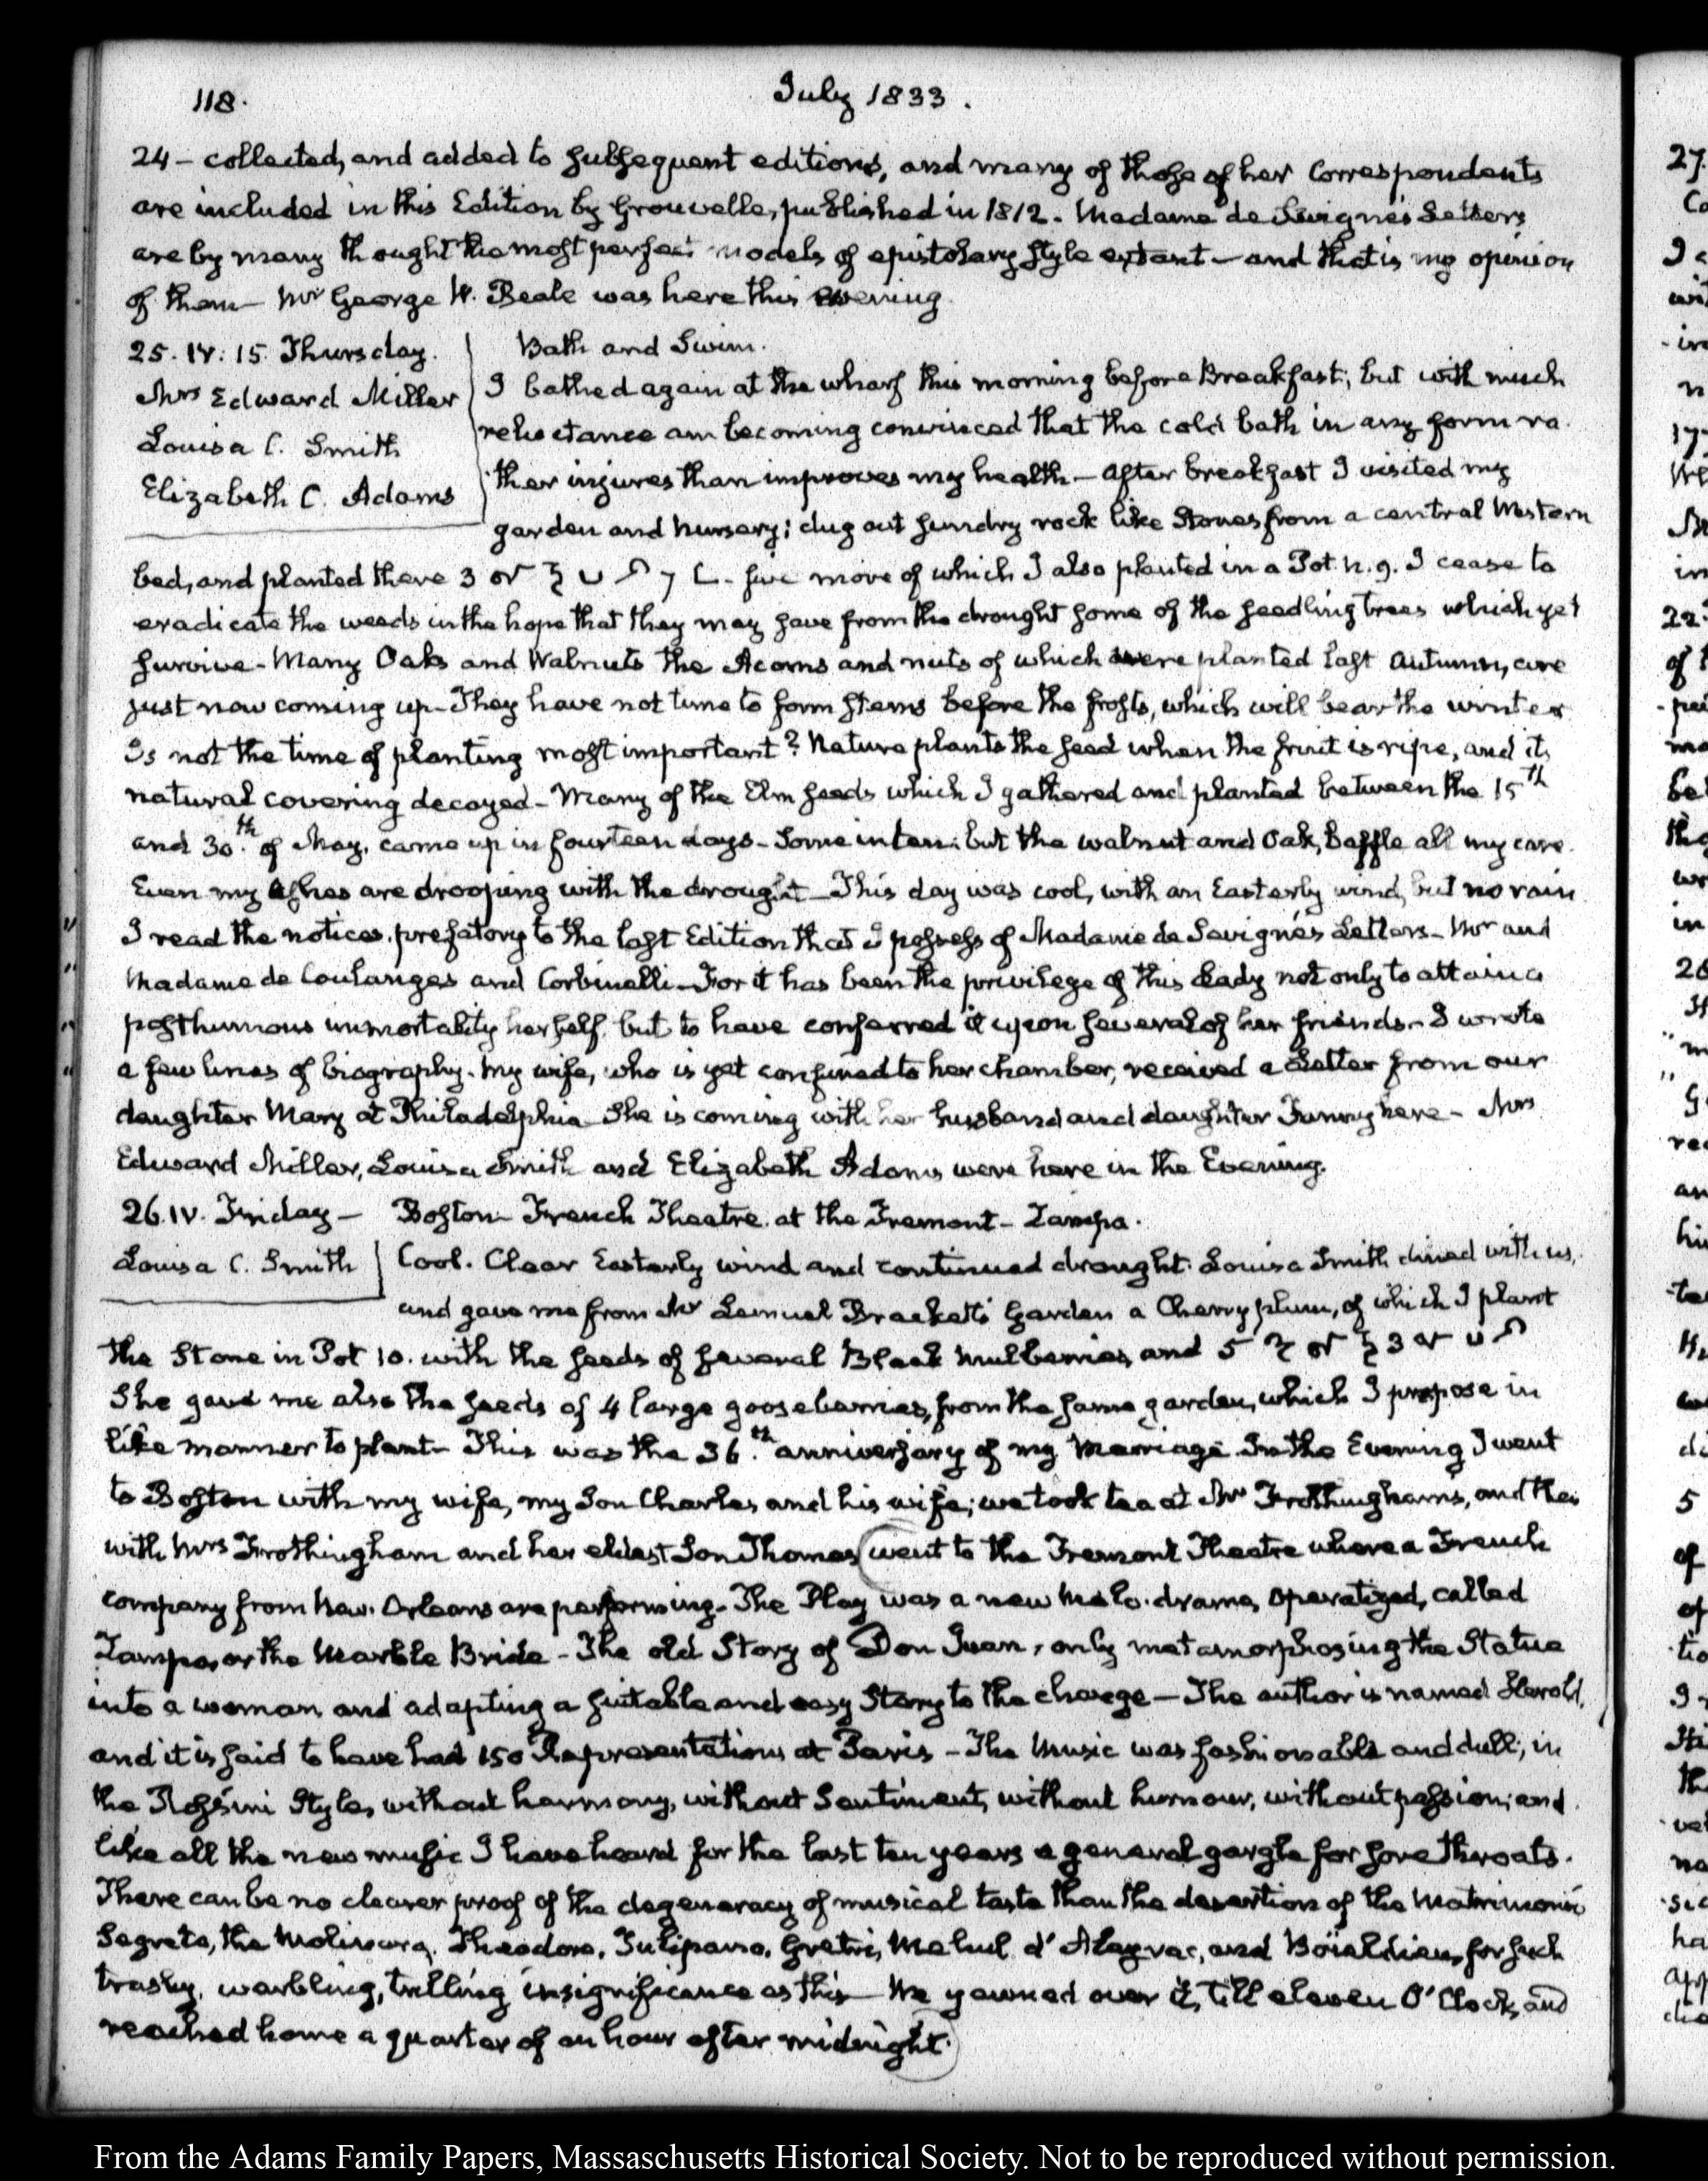 118.
July 1833.
24 – collected, and added to subsequent editions, and many of those of her Correspondents
are included in this Edition by Grouvelle, published in 1812. Madame de Sevigné's Letters
are by many thought the most perfect models of epistolary style extant – and that is my opinion
of them – Mr George W. Beale was here this evening
25. IV: 15. Thursday.
Mrs Edward Miller
Louisa C. Smith
Elizabeth C. Adams
Bath and Swim.
I bathed again at the wharf this morning before Breakfast; but with much
reluctance am becoming convinced that the cold bath in any form ra
ther injures than improves my health – After breakfast I visited my
garden and nursery; dug out sundry rock like Stones from a central Western
bed, and planted there 3 of which I also planted in a Pot. n. 9. I cease to
eradicate the weeds in the hope that they may save from the drought some of the seedling trees which yet
survive – Many Oaks and Walnuts the Acorns and nuts of which were planted last Autumn, are
just now coming up – They have not time to form stems before the frosts, which will bear the winter
Is not the time of planting most important? Nature plants the seed when the fruit is ripe, and its
natural covering decayed – Many of the Elm seeds which I gathered and planted between the 15th
and 30.th of May, came up in fourteen days – Some in ten: but the walnut and Oak, baffle all my care.
Even my Ashes are drooping with the drought – This day was cool, with an Easterly wind, but no rain
I read the notices prefatory to the last Edition that I possess of Madame de Sevigné's Letters – Mr and
Madame de Coulanges and Corbinelli – For it has been the privilege of this Lady not only to attain a
posthumous immortality herself but to have conferred it upon several of her friends – I wrote
a few lines of biography. My wife, who is yet confined to her chamber, received a Letter from our
daughter Mary at Philadelphia She is coming with her husband and daughter Fanny here – Mrs
Edward Miller, Louisa Smith and Elizabeth Adams were here in the Evening.
26. IV. Friday –
Boston – French Theatre at the Tremont – Zampa.
Louisa C. Smith
Cool. Clear Easterly wind and continued drought. Louisa Smith dined with us,
and gave me from Mr Lemuel Brackett's Garden a Cherry plum, of which I plant
the Stone in Pot 10. with the seeds of several Black Mulberries, and 5
She gave me also the seeds of 4 large gooseberries, from the same garden, which I propose in
like manner to plant – This was the 36.th anniversary of my Marriage. In the Evening I went
to Boston with my wife, my Son Charles and his wife; we took tea at Mr Frothingham's, and then
with Mrs Frothingham and her eldest Son Thomas went to the Tremont Theatre where a French
company from New Orleans are performing – The Play was a new Melo-drama, operatized, called
Zampa, or the Marble Bride – The old Story of Don Juan, only metamorphosing the Statue
into a woman, and adapting a suitable and easy Story to the change – The author is named Herold,
and it is said to have had 150 Representations at Paris – The Music was fashionable and dull; in
the Rossini Style, without harmony, without Sentiment, without humour, without passion; and
like all the new music I have heard for the last ten years a general gargle for sore throats.
There can be no clearer proof of the degeneracy of musical taste than the desertion of the Matrimonio
Segreto, the Molinara, Theodore, Tulipano, Gretri, Mehul d'Alayrac, and Boieldieu, for such
trashy, warbling, trilling insignificance as this – We yawned over it, till eleven O'Clock, and
reached home a quarter of an hour after midnight.
From the Adams Family Papers, Massaschusetts Historical Society. Not to be reproduced without permission.